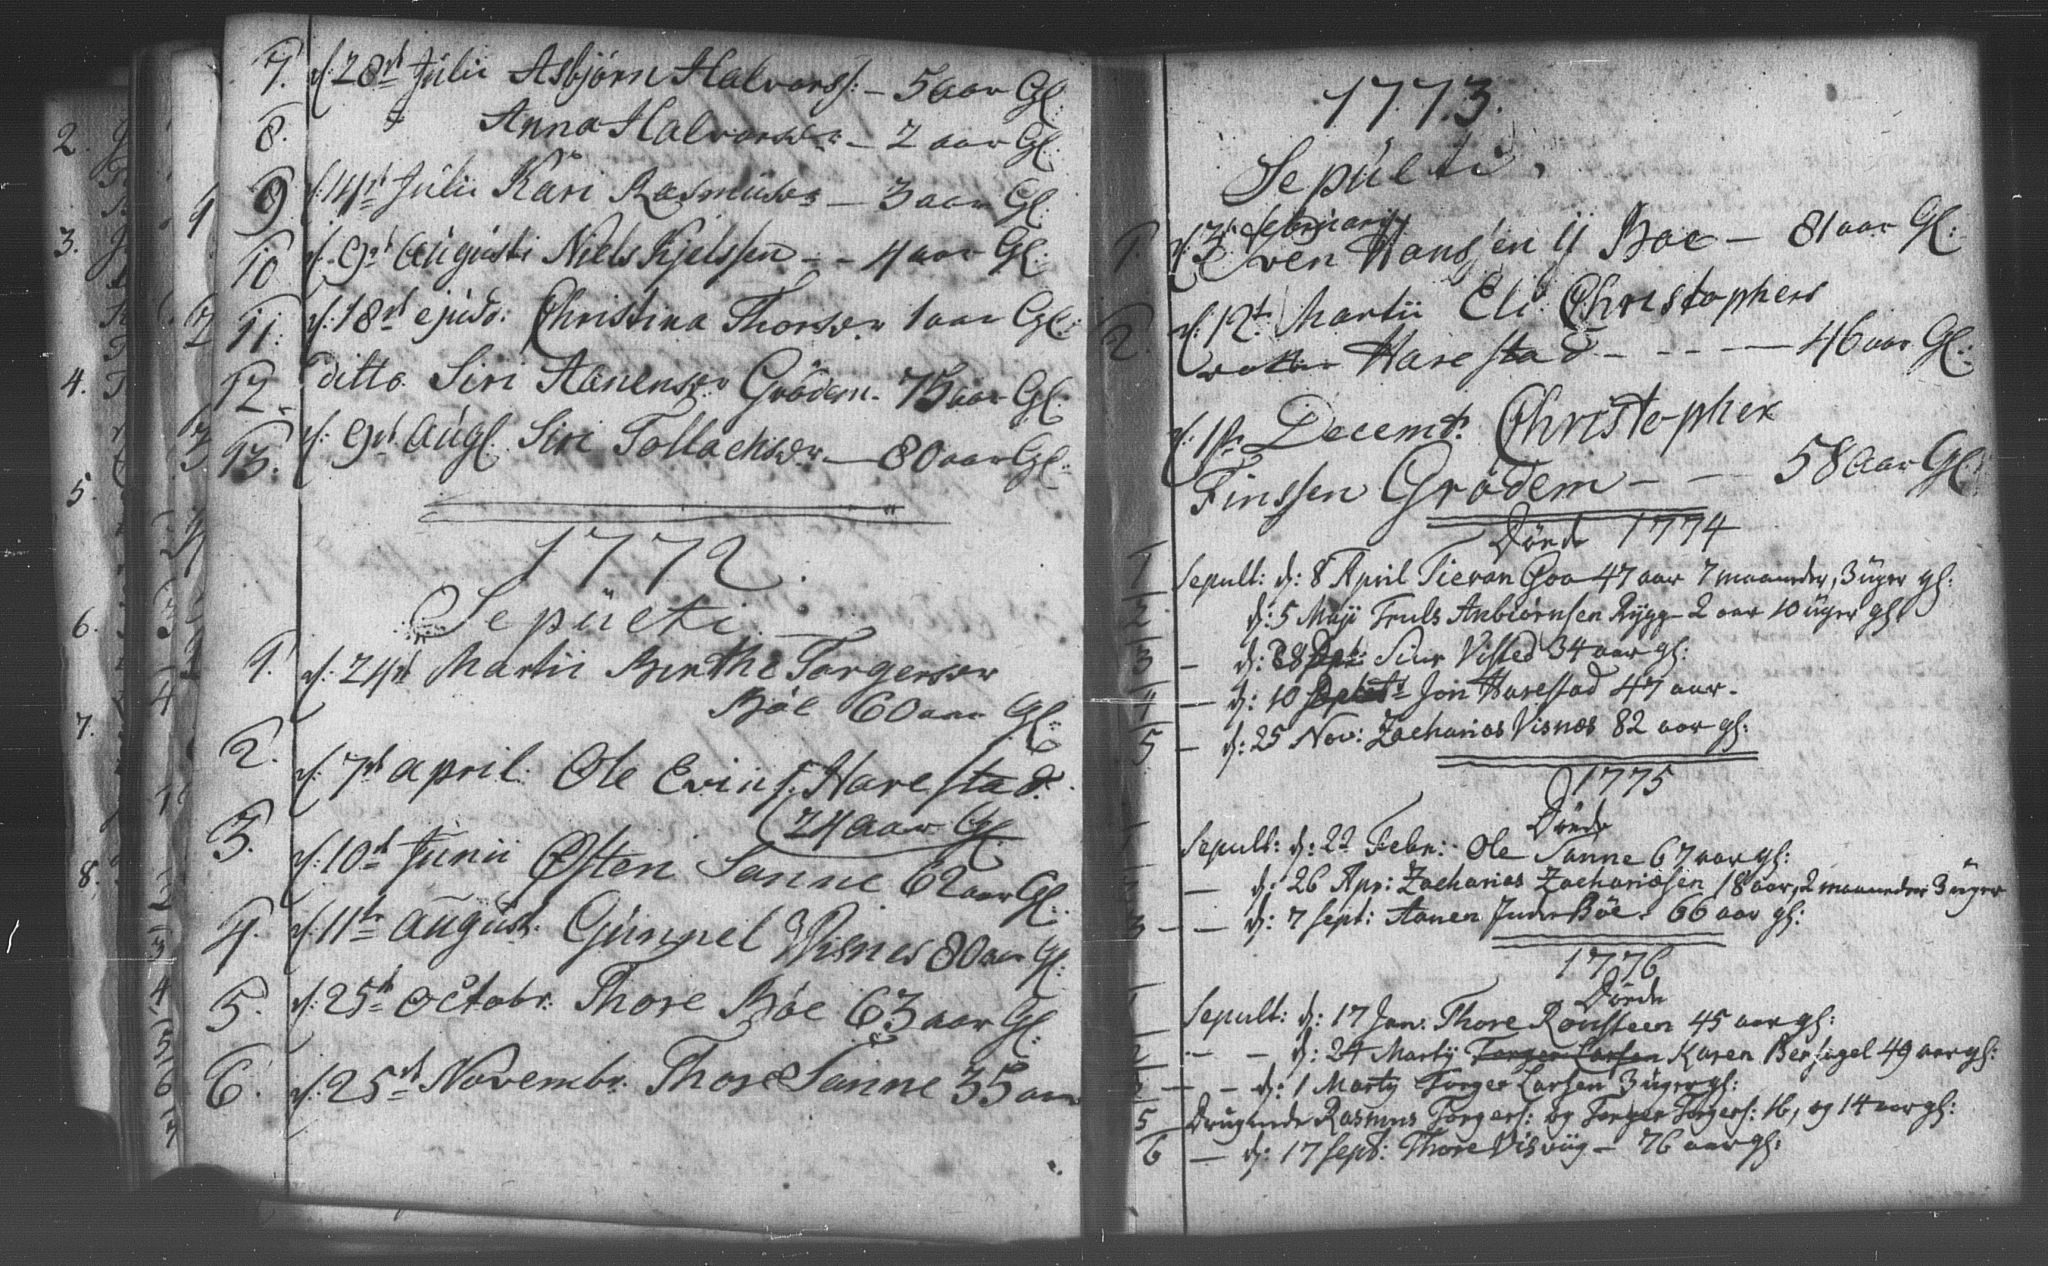 7. d: 28de Julii Asbjørn Halvors: — 5 aar Gl:
8. Anna Halvorsdr — 2 aar Gl:
9 d: 14de Julii Kari Rasmusdr — 3 aar Gl:
10 d: 9de Augusti Niels Kjelssen — 4 aar Gl:
11. d: 18de ejusd: Christina Thorsdr 1 aar Gl:
12. ditto. Siri Aanensdr Grødem. 75 aar Gl:
13. d: 9de Aug. Siri Tollachsdr — 80 aar Gl:
1772.
Sepulti
1. d: 24de Martii Birthe Torgersdr
Bøe 60 aar Gl:
2. d: 7de April: Ole Evins: Harestad.
24 aar Gl.
3. d: 10de Junii Østen Sanne 62 aar Gl:
4. d: 11te August: Gunnel Visnes 80 aar Gl:
5. d: 25de Octobr: Thore Bøe 63 aar Gl:
6. d: 25de Novembr: Thore Sanne 35 aar
1773.
Sepulti.
1. d: Februarij
Even Hansen Boe — 81 aar Gl:
2. d: 12te Martii Eli Christophers
Harestad — 46 aar Gl:
d: 1ste Decembr Christopher
Finssen Grødem — 58 aar Gl:
Døde 1774
1 Sepult: d: 8 April Goa 47 aar 7 maaneder, 3 uger gl:
2 d: 5 Maji Truls Anbiørnsen Rygg 2 aar 10 uger gl:
3 — d: 28 Visted 34 aar gl:
4 — d: 10 Jon Harestad 47 aar.
5 — d: 25 Nov: Zacharias Visnæs 82 aar gl:
1775
Døde
1 Sepult: d: 22 Febr: Ole Sanne 67 aar gl:
2 — d: 26 Apr: Zacharias Zachariasen 18 aar, 2 maaneder 3 uger
3 — — d: 7 Sept: Aanen Bøe. 66 aar gl:
1776
Døde
1 Sepult: d: 17 Jan: Thore Rousteen 45 aar gl:
2 — — d: 24 Martij Torger Larsen Karen Bersagel 49 aar gl:
3 — — d: 1 Martij Torger Larsen 3 uger gl:
5 Drugnede Rasmus Torgers: og Torger Torgers: 16, og 14 aar gl:
6 — d: 17 Sept: Thore Visvig — 76 aar gl: